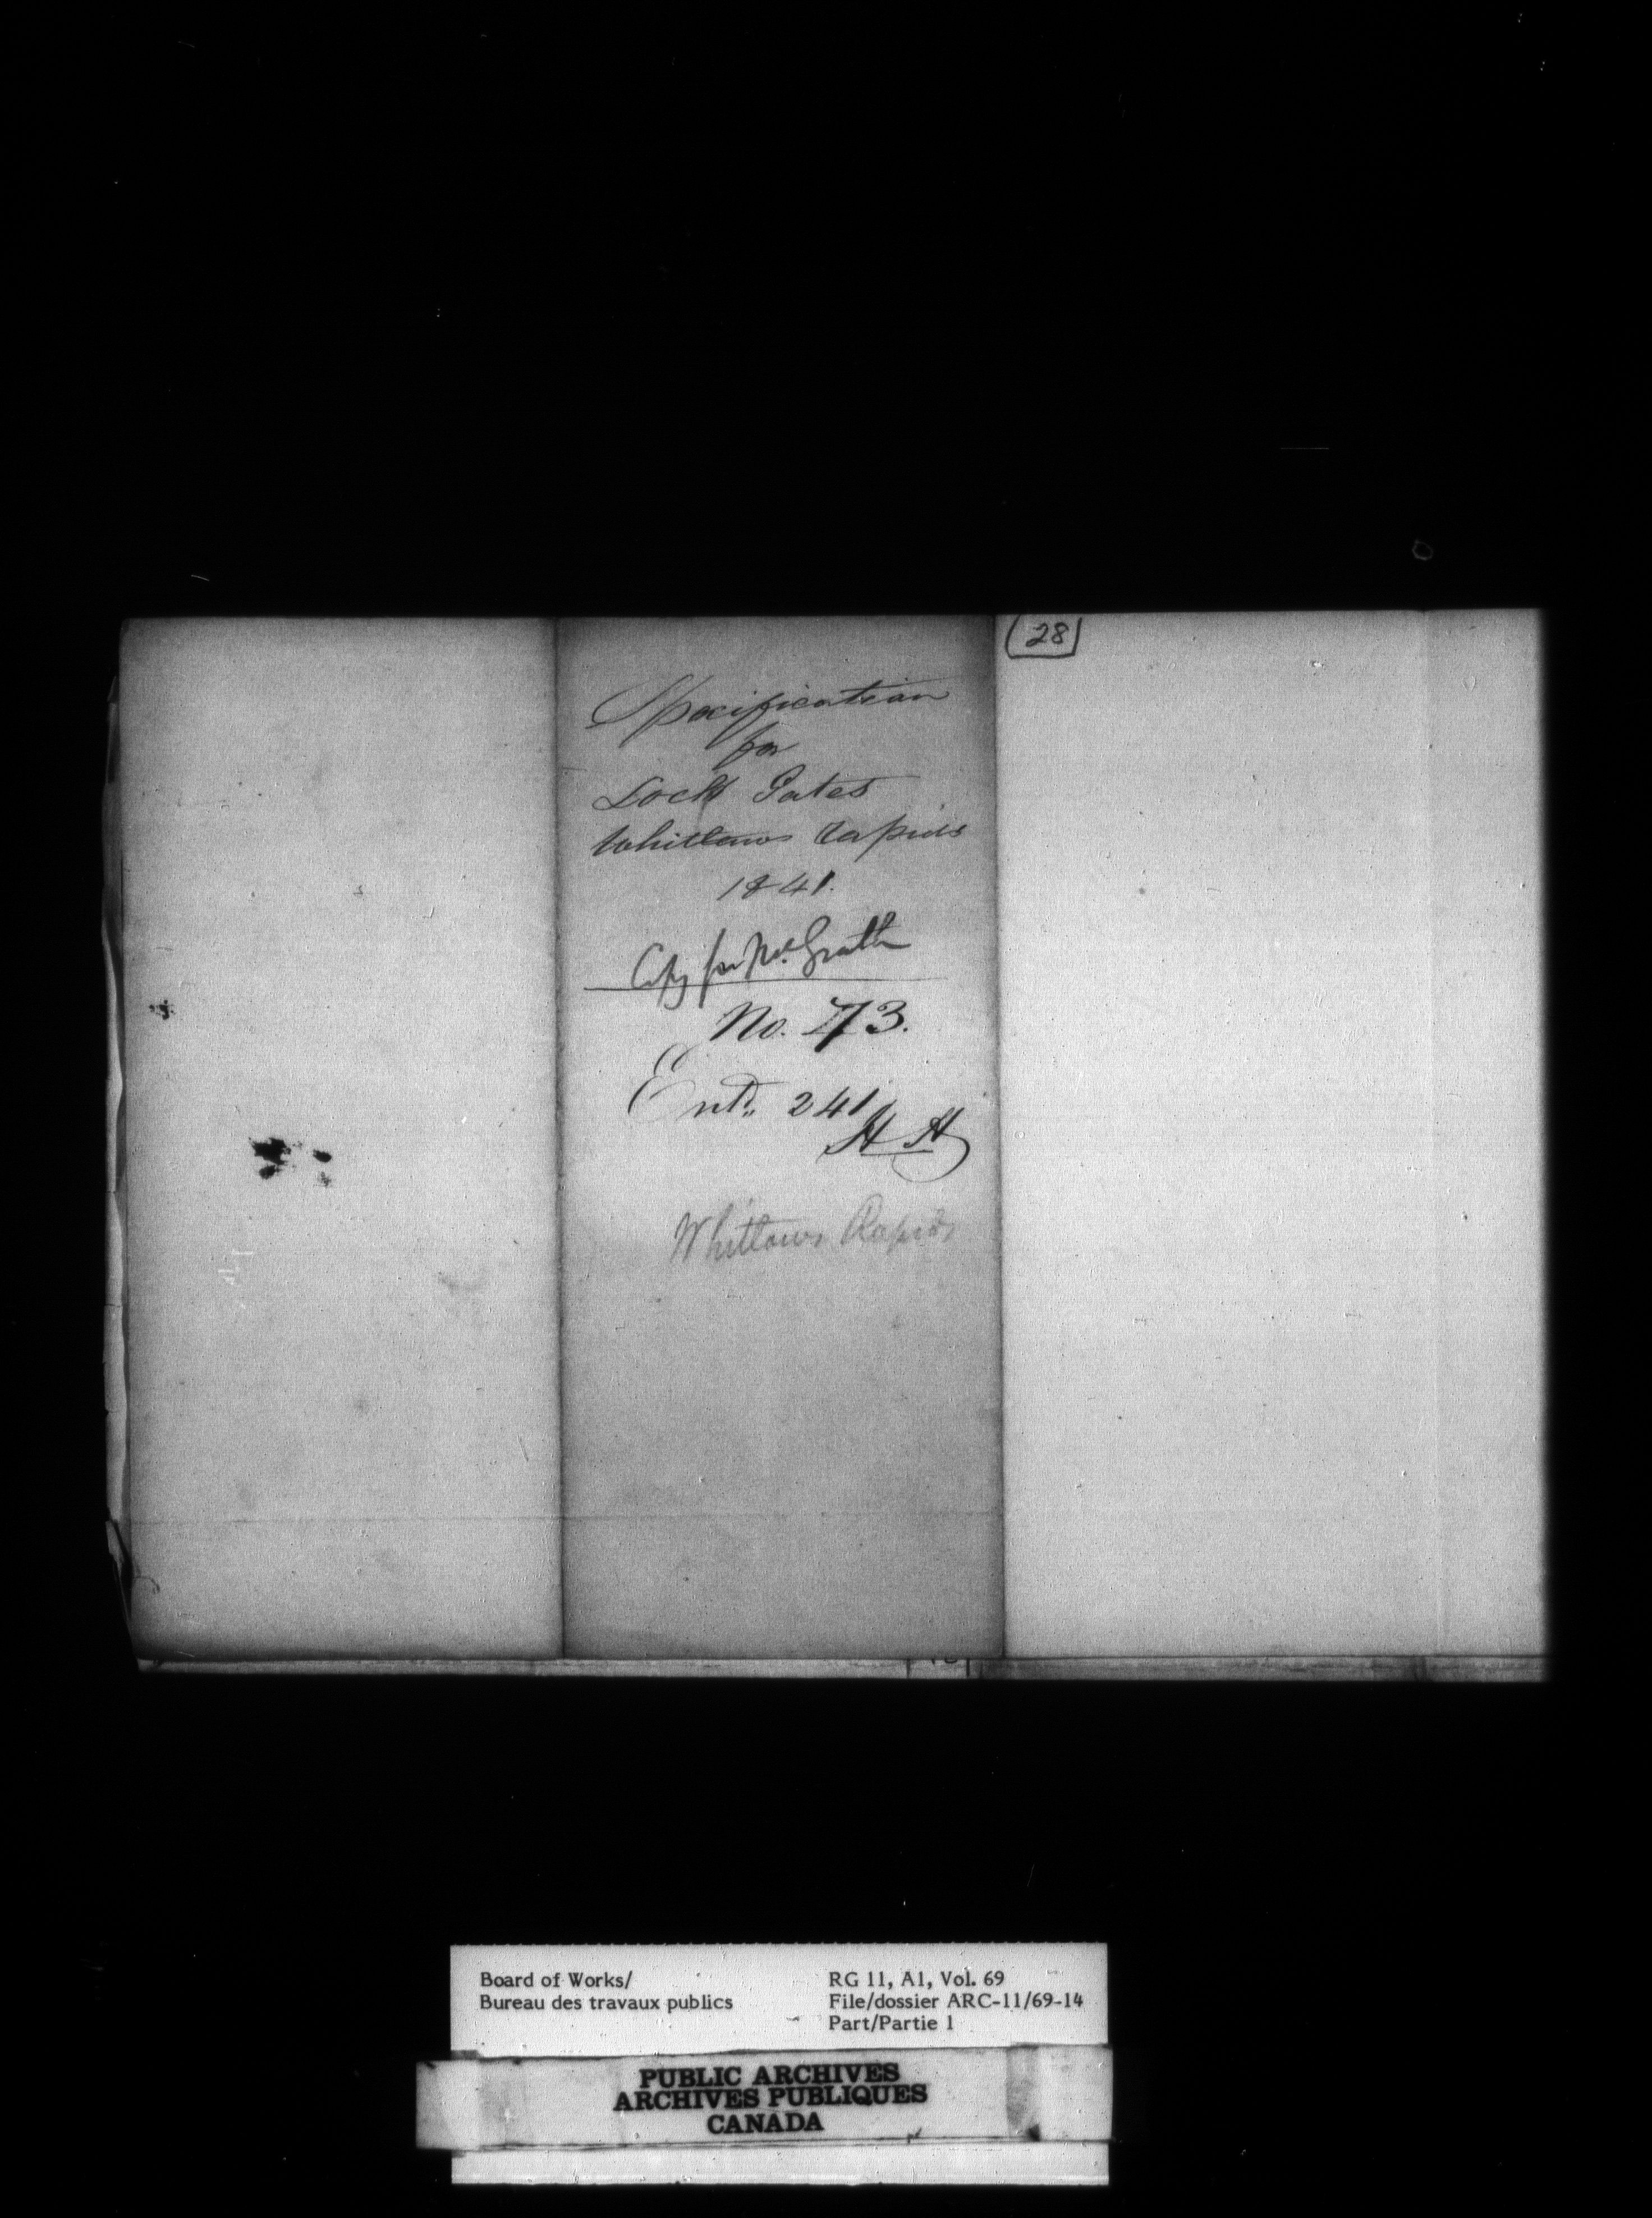 28
Specification
for
Lock Gates
Whitlaws Rapids
1841.
Copy for McGrath
No. 73.
Entd. 241
HH
Whitlaws Rapids
Board of Works/
Bureau des travaux publics
RG 11, A1, Vol. 69
File/dossier ARC-11/69-14
Part/Partie 1
PUBLIC ARCHIVES
ARCHIVES PUBLIQUES
CANADA